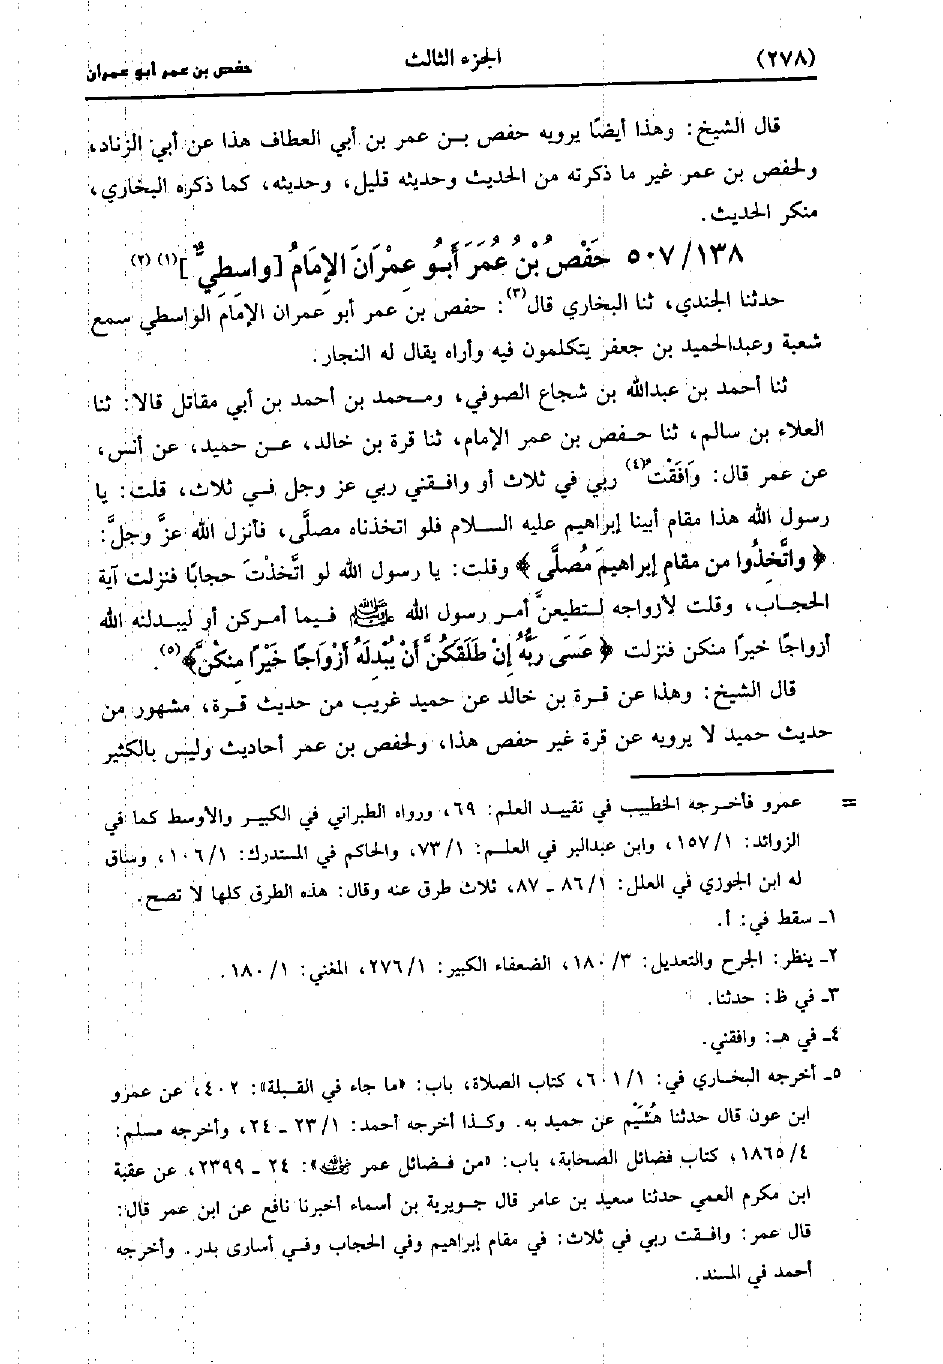 (٢٧٨) الجزء الثالث حفص بن عمر أبو عمران
قال الشيخ: وهذا أيضًا يرويه حفص بـن عمر بن أبي العطاف هذا عن أبي الزناد،
ولحفص بن عمر غير ما ذكرته من الحديث وحديثه قليل، وحديثه، كما ذكره البخاري،
منكر الحديث.
٥٠٧/١٣٨ حَفْصُ بْنُ عُمَرَ أَبُو عِمْرَانَ الإِمَامُ [واسطيٌّ](١) (٢)
حدثنا الجنيدي، ثنا البخاري قال(٣): حفص بن عمر أبو عمران الإمام الواسطي سمع
شعبة وعبدالحميد بن جعفر يتكلمون فيه وأراه يقال له النجار.
ثنا أحمد بن عبدالله بن شجاع الصوفي، ومـحمد بن أحمد بن أبي مقاتل قالا: ثنا
العلاء بن سالم، ثنا حـفص بن عمر الإمام، ثنا قرة بن خالد، عـن حميد، عن أنس،
عن عمر قال: وَافَقْت(٤) ربي في ثلاث أو وافـقني ربي عز وجل فـي ثلاث، قلت: يا
رسول الله هذا مقام أبينا إبراهيم عليه السـلام فلو اتخذناه مصلَّى، فأنزل الله عزَّ وجلَّ:
﴿ واتَّخِذُوا من مقامِ إبراهيمَ مُصلَّى ﴾ وقلت: يا رسول الله لو اتَّخذتَ حجابًا فنزلت آية
الحجـاب، وقلت لأزواجه لـتطيعنَّ أمـر رسول الله ﷺ فـيما أمـركن أو ليبـدلنه الله
أزواجًا خيرًا منكن فنزلت ﴿ عَسَى رَبُّهُ إِنْ طَلَقَكُنَّ أَنْ يُبْدِلَهُ أَزْوَاجًا خَيْرًا مِنكُنَّ﴾(٥).
قال الشيخ: وهذا عن قـرة بن خالد عن حميد غريب من حديث قـرة، مشهور من
حديث حميد لا يرويه عن قرة غير حفص هذا، ولحفص بن عمر أحاديث وليس بالكثير
= عمرو فأخـرجه الخطيب في تقييـد العلم: ٦٩، ورواه الطبراني في الكبيـر والأوسط كما في
الزوائد: ١٥٧/١، وابن عبدالبر في العلـم: ٧٣/١، والحاكم في المستدرك: ١٠٦/١، وساق
له ابن الجوزي في العلل: ٨٦/١ ـ ٨٧، ثلاث طرق عنه وقال: هذه الطرق كلها لا تصح.
١ـ سقط في: أ.
٢ـ ينظر: الجرح والتعديل: ١٨٠/٣، الضعفاء الكبير: ٢٧٦/١، المغني: ١٨٠/١.
٣ـ في ظ: حدثنا.
٤ـ في هـ: وافقني.
٥ـ أخرجه البخـاري في: ٦٠١/١، كتاب الصلاة، باب: «ما جاء في القبـلة»: ٤٠٢، عن عمرو
ابن عون قال حدثنا هُشَيْم عن حميد به. وكـذا أخرجه أحمد: ٢٣/١ ـ ٢٤، وأخرجه مسلم:
١٨٦٥/٤، كتاب فضائل الصحابة، باب: «من فـضائل عمر ﵁»: ٢٤ ـ ٢٣٩٩، عن عقبة
ابن مكرم العمي حدثنا سعيد بن عامر قال جـويرية بن أسماء أخبرنا نافع عن ابن عمر قال:
قال عمر: وافـقت ربي في ثلاث: في مقام إبراهيم وفي الحجاب وفـي أسارى بدر. وأخرجه
أحمد في المسند.